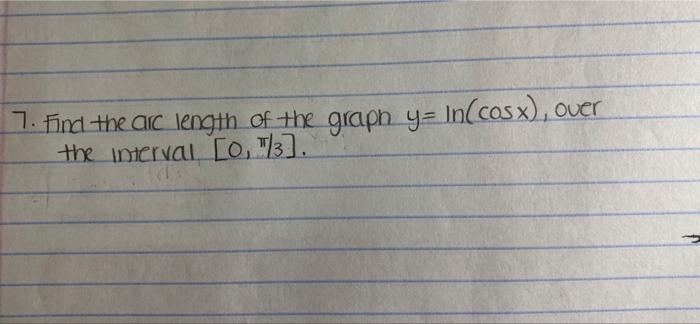 7. Find the arc length of the graph y= ln(cosx), over
the interval [0, π/3].